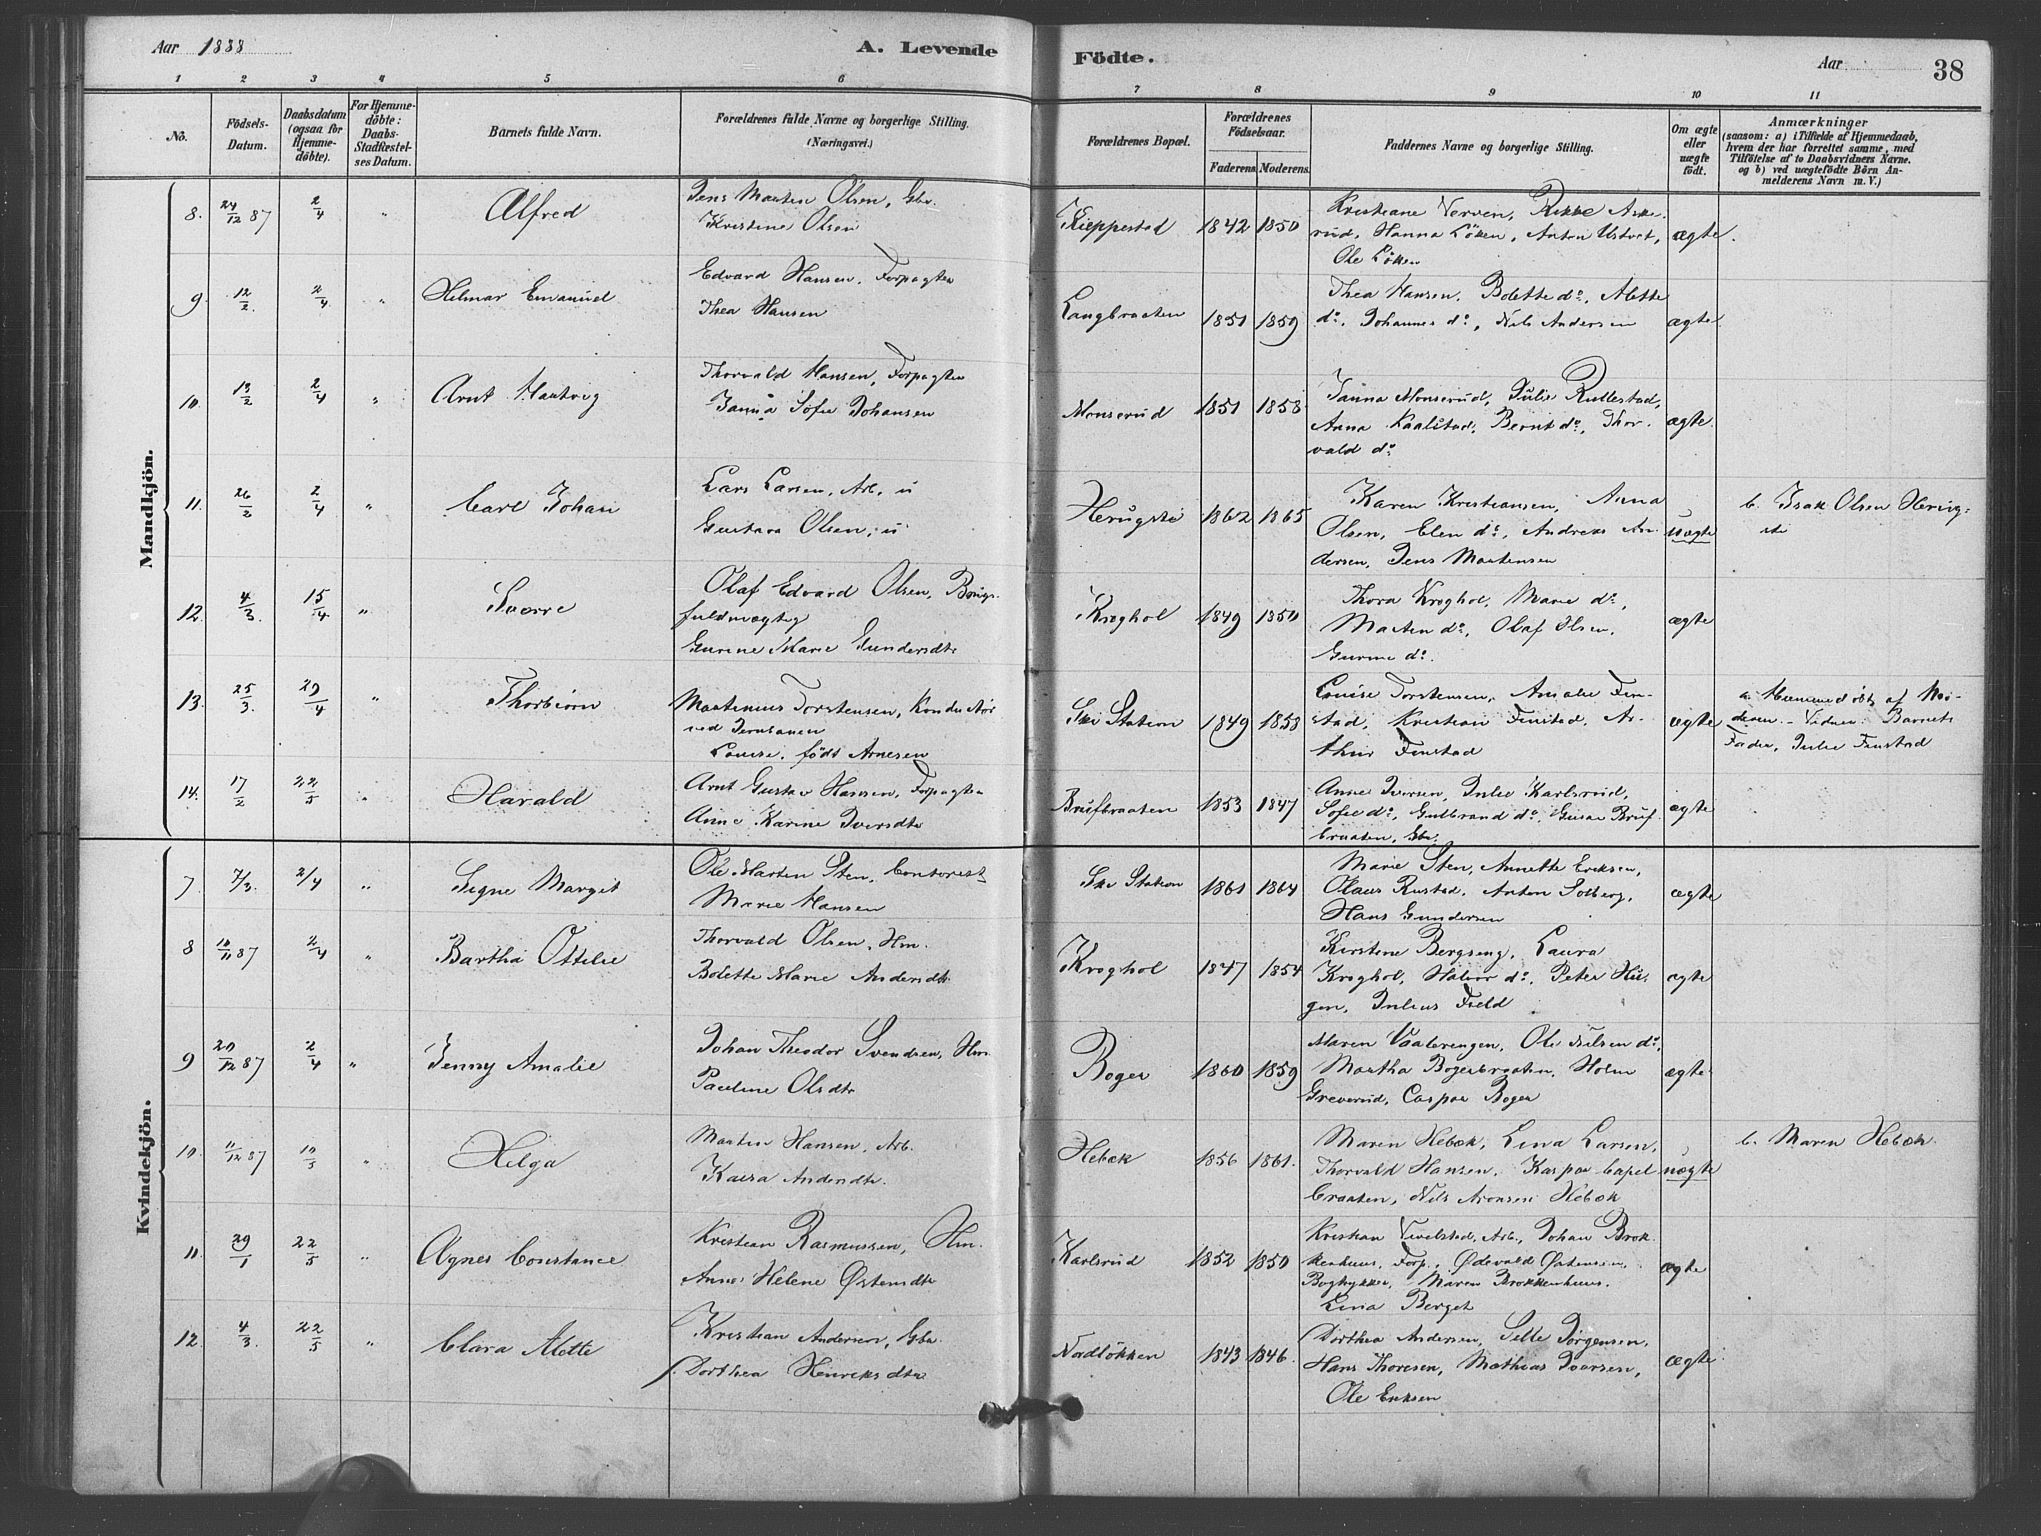 Aar 1888
A. Levende Födte.
Aar
38
1 2 3 4 5 6 7 8 9 10 11
No.
Födsels-Datum.
Daabsdatum (ogsaa for Hjemmedöbte).
For Hjemmedöbte: Daabs-Stadfæstelses Datum.
Barnets fulde Navn.
Forældrenes fulde Navne og borgerlige Stilling. (Næringsvei.)
Forældrenes Bopæl.
Forældrenes Födselsaar.
Faderens. Moderens.
Faddernes Navne og borgerlige Stilling.
Om ægte eller uægte födt.
Anmærkninger
(saasom: a) i Tilfælde af Hjemmedaab, hvem der har forrettet samme, med Tilföielse af to Daabsvidners Navne. og b) ved uægtefödte Börn Anmelderens Navn m. V.)
Mandkjön.
8. 24/12 87 2/4 " Alfred
Jens Martin Olsen, Gbr.
Kristine Olsen
Kieppestad 1842 1850
Kristiane Verven, Rikke Aske-
rud, Hanna Löken, Anton Ustvet,
Ole Löken
ægte.
9. 12/2. 2/4 " Hilmar Emanuel
Edvard Hansen, Forpagter
Thea Hansen
Langbraaten 1851 1859
Thea Hansen, Bolette do, Alette
do, Johannes do, Nils Andersen
ægte
10. 13/2 2/4 " Arnt Hartvig
Thorvald Hansen, Forpagter
Janna Sofie Johansen
Monserud 1851 1858
Janna Monserud, Julie Rullestad,
Anna Kaalstad, Bernt do, Thor-
vald do
ægte.
11. 26/2 2/4 " Carl Johan
Lars Larsen, Arb. u
Gustava Olsen, u
Herugsti 1862 1865
Karen Kristiansen, Anna
Olsen, Elen do, Andreas An-
dersen, Jens Martensen
uægte
b. Isak Olsen Herug-
sti
12. 4/3. 15/4. " Sverre
Olaf Edvard Olsen, Brugs-
fuldmægtig
Gurine Marie Gundersdtr
Kroghol 1849 1850
Thora Kroghol, Marie do,
Marten do, Olaf Olsen,
Gurine do.
ægte
13. 25/3. 29/4 " Thorbiörn
Martinius Torstensen, Konduktör
ved Jernbanen
Louise, födt Arnesen
Ski Station 1849 1858
Louise Torstensen, Amalie Fin-
stad, Kristian Finstad, Ar-
thur Finstad
ægte
a. Hjemmedöbt af Mo-
deren. Vidner: Barnets
Fader, Julie Finstad
14. 17/2 22/5 " Harald
Arnt Gustav Hansen, Forpagter
Anne Karine Iversdtr
Brufbraaten 1853 1847
Anne Iversen, Julie Karlsrud,
Sofie do, Gulbrand do, Gusav Bruf-
braaten, Gbr.
ægte
Kvindekjön.
7. 7/3. 2/4 " Signe Margit
Ole Martin Sten, Contorist
Marie Hansen
Ski Station 1861 1864
Marie Sten, Annette Eriksen,
Olaus Rustad, Anton Solberg,
Hans Gundersen
ægte
8 10/11 87 2/4 " Bartha Ottilie
Thorvald Olsen, Hm.
Bolette Marie Andersdtr
Kroghol 1847 1854
Kirstine Bergseng, Laura
Kroghol, Halvor do, Peter Hau-
gen, Julius Field
ægte
9 20/12 87 2/4 " Jenny Amalie
Johan Theodor Svendsen, Hm.
Pauline Olsdtr
Boger 1860 1859
Maren Vaalerengen, Ole Nilsen do,
Martha Bogerbraaten, Holm
Greverud, Caspar Boger
ægte
10. 11/12 87 10/5 " Helga
Martin Hansen, Arb.
Kaisa Andersdtr.
Hebæk 1856 1861.
Maren Hebæk, Lina Larsen,
Thorvald Hansen, Kaspar Capel
braaten, Nils Aronsen Hebæk
uægte
b. Maren Hebæk
11. 29/1 22/5 " Agnes Constance
Kristian Rasmussen, Hm.
Anne Helene Østensdtr
Karlsrud 1852 1850
Kristian Vevelstad, Arb. Johan Brok-
kenhuus, Forp., Ødevald Østensen,
Bogtrykker, Maren Brokkenhuus.
Lina Berget
ægte
12. 4/3. 22/5 " Clara Alette
Kristian Andersen, Gbr.
Dorthea Henriksdtr
Nordlökken 1843 1846.
Dorthea Andersen, Sille Jörgensen,
Hans Thoresen, Mathias Ivarsen,
Ole Eriksen
ægte